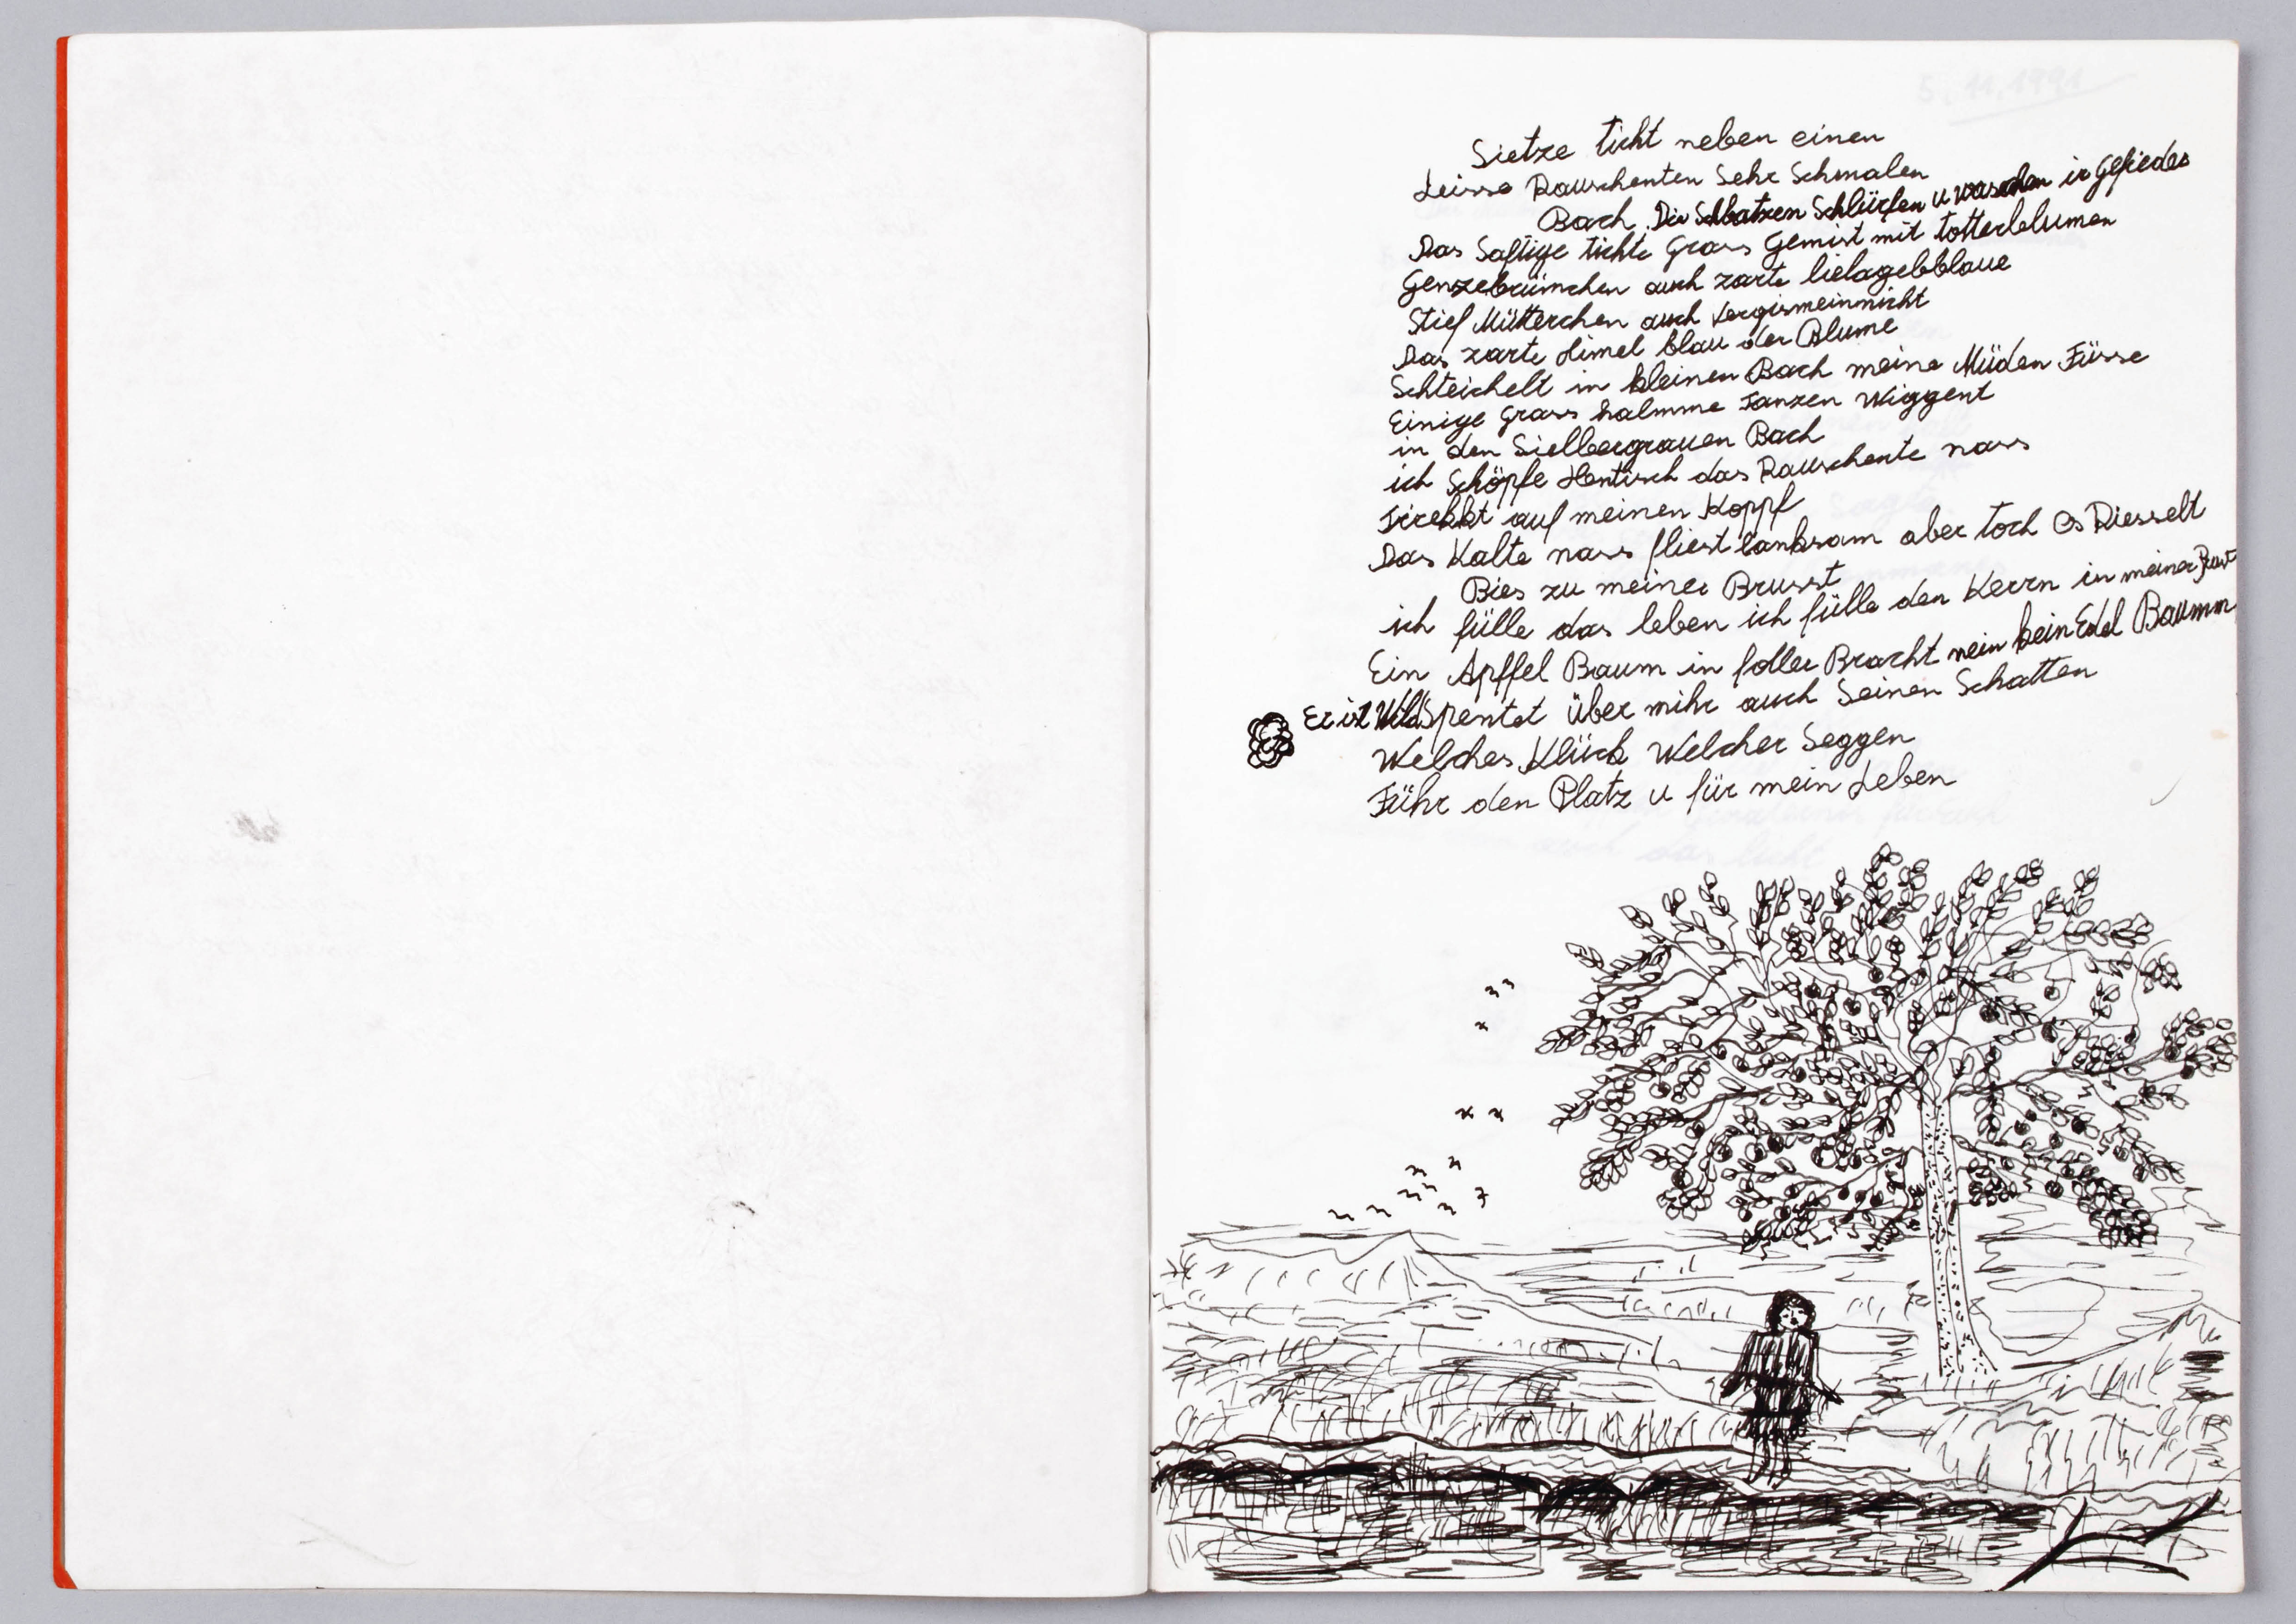 Sietze ticht neben einen
Leisse Rauschenten Sehr Schmalen
Bach. Die Schbatzen Schlürfen u waschen ir Gefieder
Das Saftige tichte Grass Gemist mit totterblumen
Genzebrümchen auch zarte lielagebblaue
Stief Mütterchen auch Vergismeinnicht
Das zarte Himel blau der Blume
Schteichelt in kleinen Bach meine Müden Füsse
Einige Grass halmme Tanzen Wiggent
in den Sielbergrauen Bach
ich Schöpfe Hentisch das Rauschente nass
Tirekkt auf meinen Koppf
Das Kalte nass fliest lanksam aber toch es Riesselt
Bies zu meiner Brusst
ich fülle das leben ich fülle den Kerrn in meiner Brust
Ein Apffel Baum in foller Bracht nein kein Edel Baumm
Er ist Wild Spentet über mihr auch Seinen Schatten
Welches Klück Welcher Seggen
Führ den Platz u für mein Leben
5.11.1991